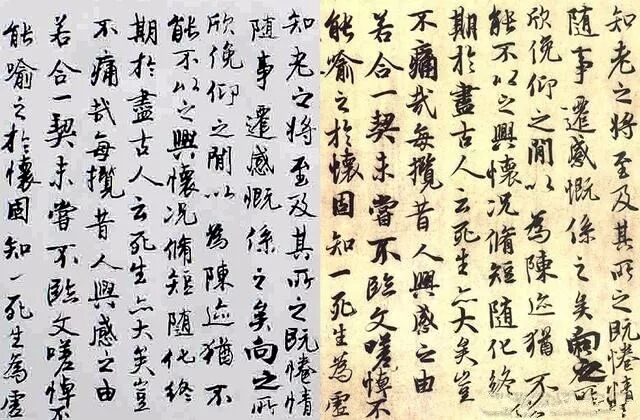 知老之将至及其所之既惓情
隨事遷感慨係之矣向之所
欣俛仰之閒以為陳迹猶不
能不以之興懷况脩短隨化終
期於盡古人云死生亦大矣豈
不痛哉每攬昔人興感之由
若合一契未嘗不臨文嗟悼不
能喻之於懷固知一死生為虛
知老之将至及其所之既惓情
隨事遷感慨係之矣向之所
欣俛仰之閒以為陳迹猶不
能不以之興懷况脩短隨化終
期於盡古人云死生亦大矣豈
不痛哉每攬昔人興感之由
若合一契未嘗不臨文嗟悼不
能喻之於懷固知一死生為虛